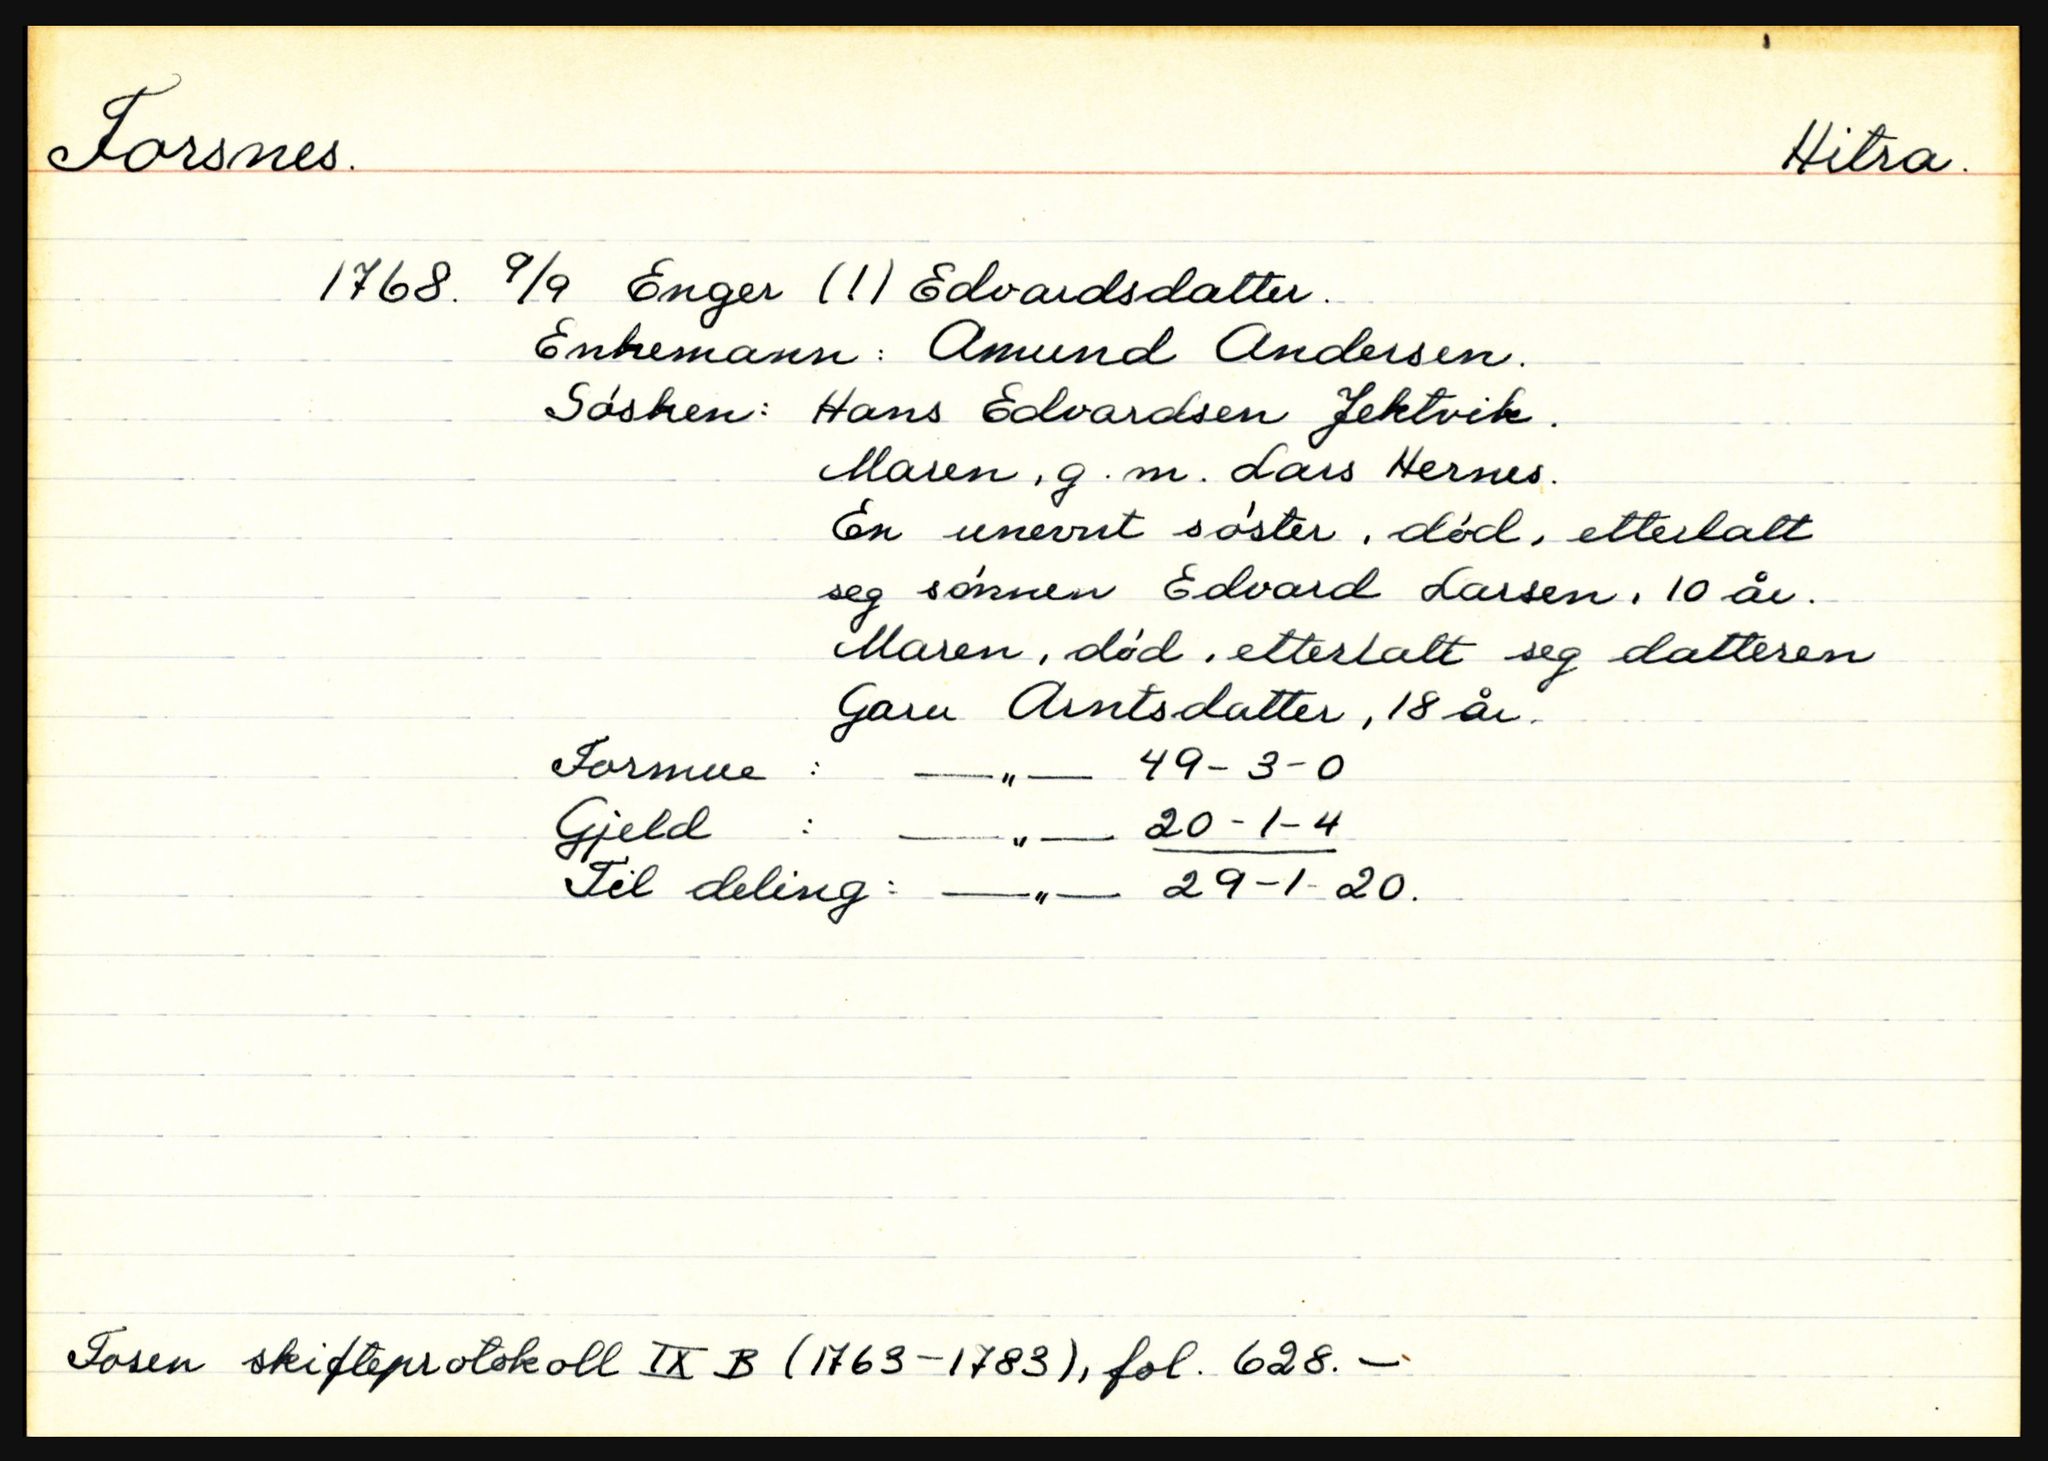 Forsnes. Hitra.
1768. 9/9 Enger (!) Edvardsdatter.
Enkemann: Amund Andersen.
Søsken: Hans Edvardsen Jektvik.
Maren, g. m. Lars Hernes.
En unevnt søster, død, etterlatt
seg sønnen Edvard Larsen, 10 år.
Maren, død, etterlatt seg datteren
Guru Arntsdatter, 18 år.
Formue : —„— 49-3-0
Gjeld : —„— 20-1-4
Til deling: —„— 29-1-20.
Fosen skifteprotokoll IX B (1763-1783), fol. 628. —